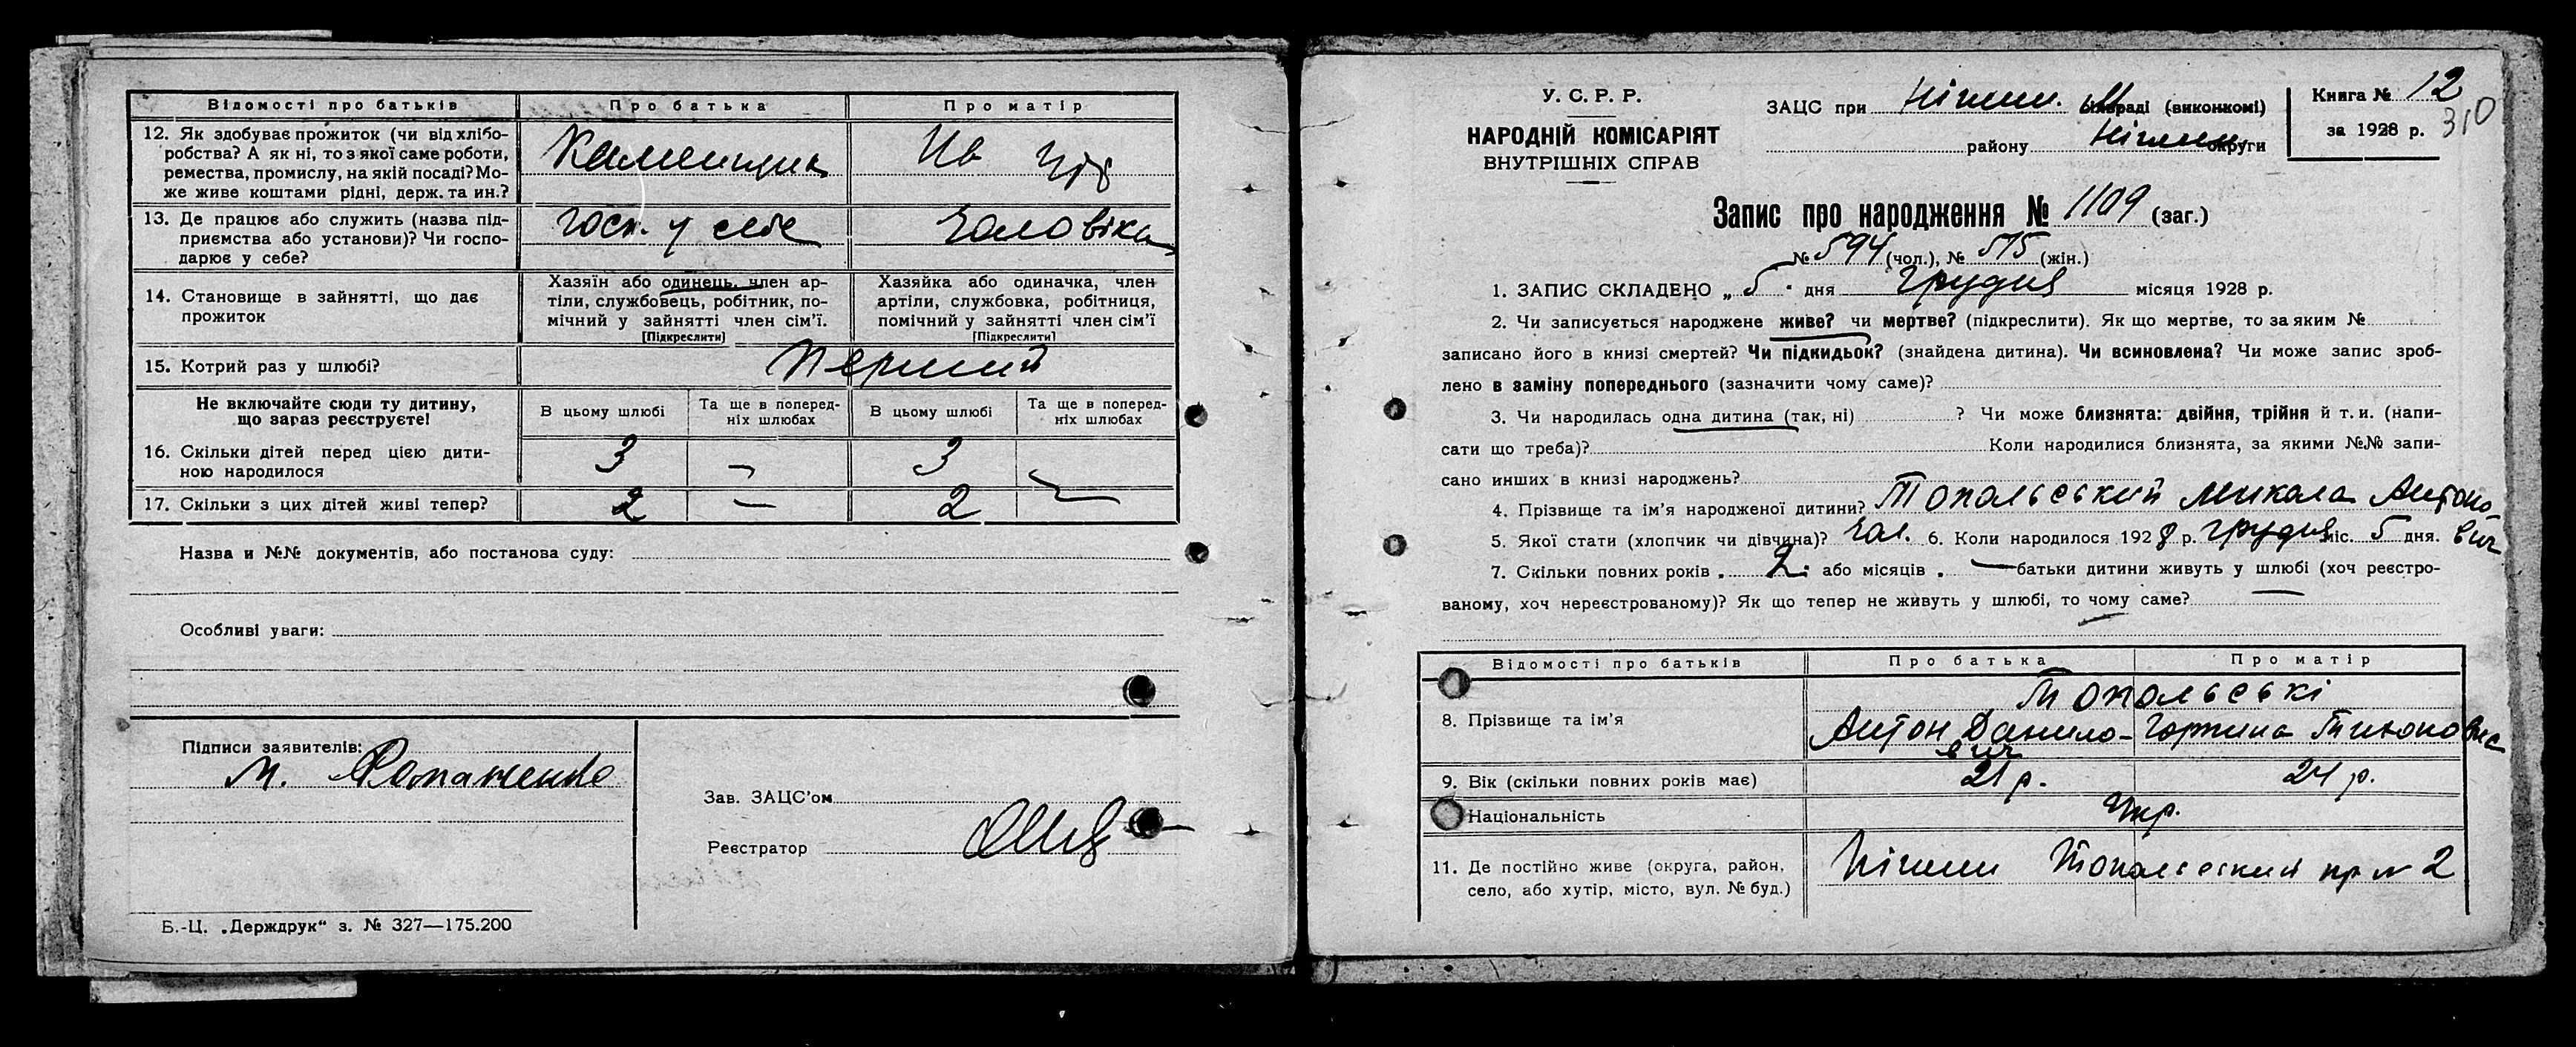 Відомості про батьків Про батька Про матір
12. Як здобуває прожиток (чи від хлібо-
робства? А як ні, то з якої саме роботи,
ремества, промислу, на якій посаді? Мо-
же живе коштами рідні, держ. та ин.?
Каменщик На утр
13. Де працює або служить (назва під-
приємства або установи)? Чи госпо-
дарює у себе?
госп. у себе чоловіка
14. Становище в зайнятті, що дає
прожиток
Хазяїн або одинець, член ар-
тіли, службовець, робітник, по-
мічний у зайнятті член сім'ї.
[Підкреслити]
Хазяйка або одиначка, член
артіли, службовка, робітниця,
помічний у зайнятті член сім'ї
[Підкреслити]
15. Котрий раз у шлюбі? Перший
Не включайте сюди ту дитину,
що зараз реєструєте!
В цьому шлюбі
Та ще в поперед-
ніх шлюбах
В цьому шлюбі
Та ще в поперед-
ніх шлюбах
16. Скільки дітей перед цією дити-
ною народилося
3 — 3 —
17. Скільки з цих дітей живі тепер? 2 — 2
Назва и №№ документів, або постанова суду:
Особливі уваги:
Підписи заявителів:
М.
Зав. ЗАЦС'ом
Реєстратор
Б.-Ц. „Держдрук" з. № 327—175.200
У. С. Р. Р.
НАРОДНІЙ КОМІСАРІЯТ
ВНУТРІШНІХ СПРАВ
ЗАЦС при Ніжин. М раді (виконкомі)
району Ніжин округи
Книга № 12
за 1928 р.
310
Запис про народження № 1109 (заг.)
№ 594 (чол.), № 515 (жін.)
1. ЗАПИС СКЛАДЕНО „ 5 " дня Грудня місяця 1928 р.
2. Чи записується народжене живе? чи мертве? (підкреслити). Як що мертве, то за яким №
записано його в книзі смертей? Чи підкидьок? (знайдена дитина). Чи всиновлена? Чи може запис зроб-
лено в заміну попереднього (зазначити чому саме)?
3. Чи народилась одна дитина (так, ні) ? Чи може близнята: двійня, трійня й т. и. (напи-
сати що треба)? Коли народилися близнята, за якими №№ запи-
сано инших в книзі народжень?
4. Прізвище та ім'я народженої дитини? Топальський Микола Антоно-
вич
5. Якої стати (хлопчик чи дівчина)? Чол. 6. Коли народилося 1928 р. Грудня міс. 5 дня.
7. Скільки повних років „ 2 " або місяців „ — батьки дитини живуть у шлюбі (хоч реєстро-
ваному, хоч нереєстрованому)? Як що тепер не живуть у шлюбі, то чому саме? —
Відомості про батьків Про батька Про матір
Топальські
8. Прізвище та ім'я Антон Данило-
вич
Горпина Тихоновна
9. Вік (скільки повних років має) 21 р. 24 р.
Національність Укр.
11. Де постійно живе (округа, район,
село, або хутір, місто, вул. № буд.)
Ніжин Топальський пр № 2